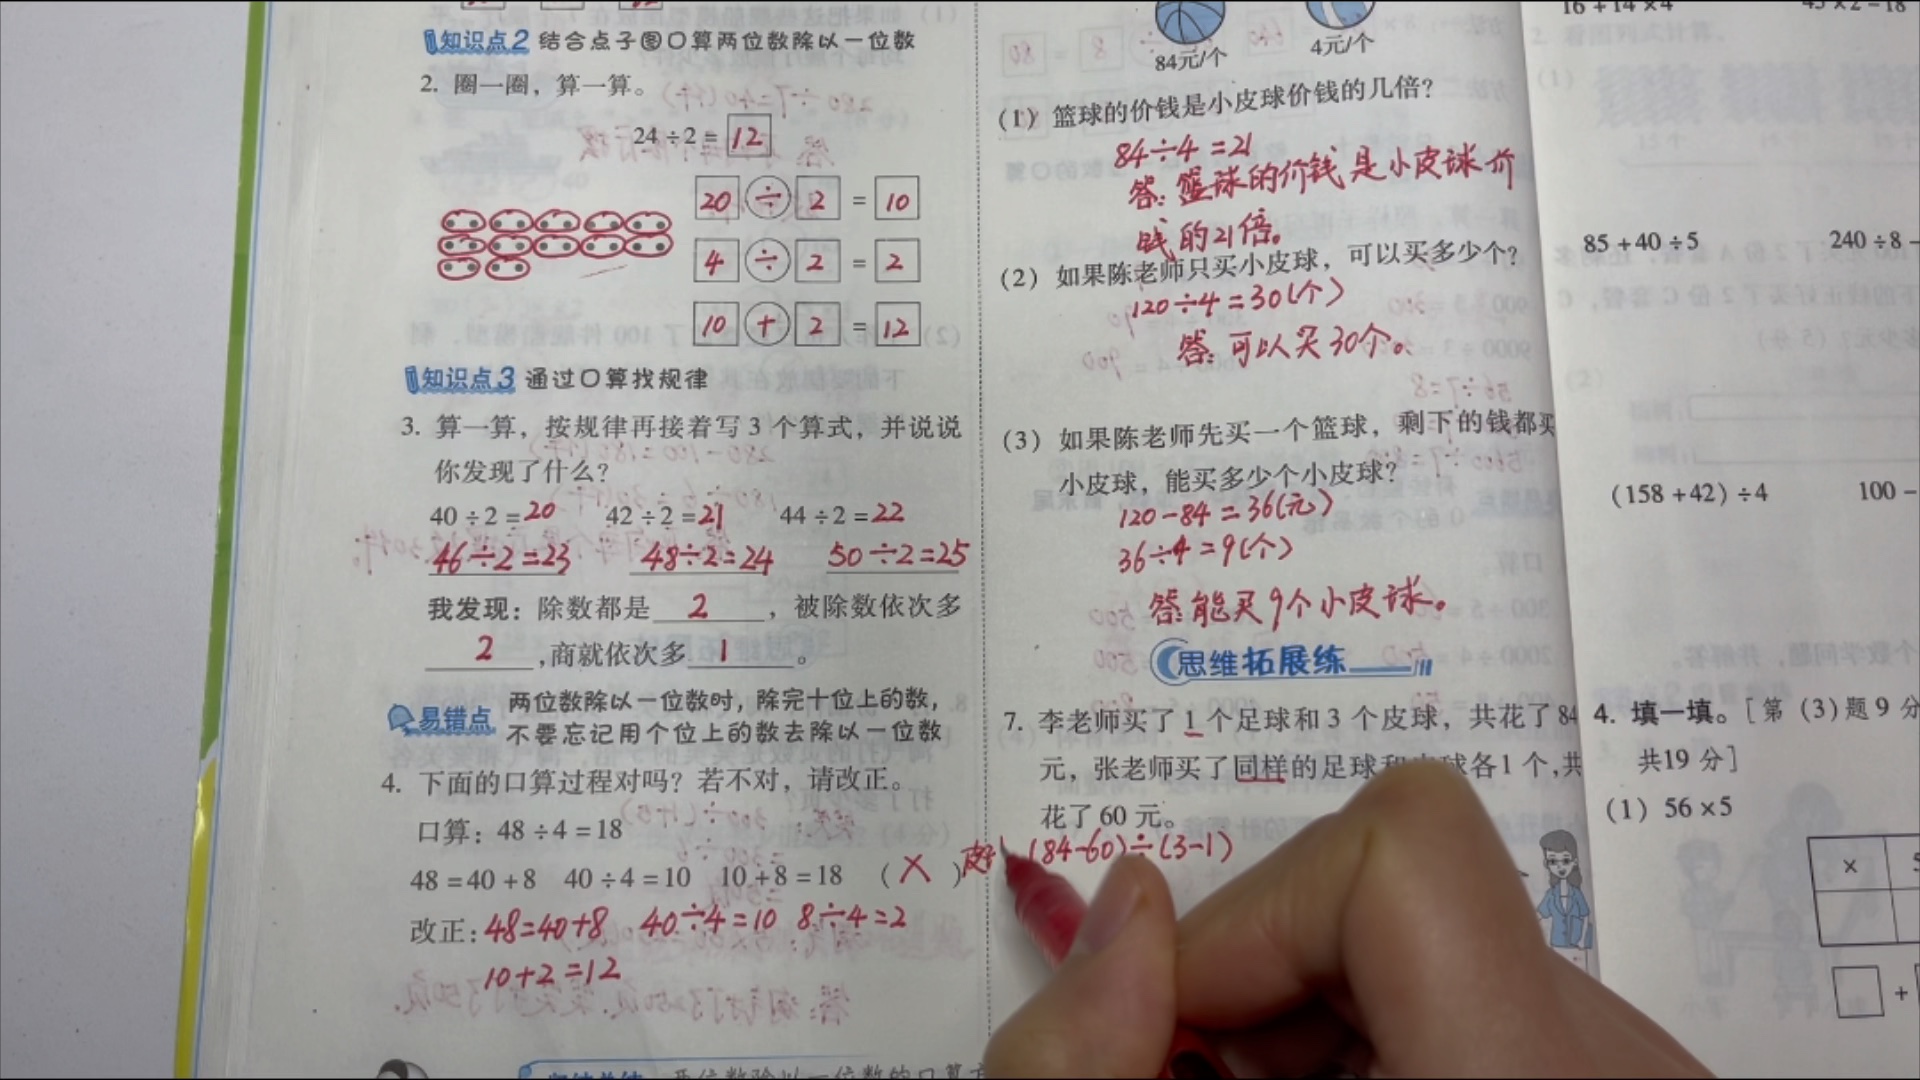 知识点2 结合点子图口算两位数除以一位数
2. 圈一圈，算一算。
24÷2=12
20÷2=10
4÷2=2
10+2=12
知识点3 通过口算找规律
3. 算一算，按规律再接着写3个算式，并说说
你发现了什么？
40÷2=20 42÷2=21 44÷2=22
46÷2=23 48÷2=24 50÷2=25
我发现：除数都是2，被除数依次多
2,商就依次多1。
易错点 两位数除以一位数时，除完十位上的数，
不要忘记用个位上的数去除以一位数
4. 下面的口算过程对吗？若不对，请改正。
口算：48÷4=18
48=40+8 40÷4=10 10+8=18 (×)
改正：48=40+8 40÷4=10 8÷4=2
10+2=12
84元/个 4元/个
(1) 篮球的价钱是小皮球价钱的几倍？
84÷4=21
答：篮球的价钱是小皮球价
钱的21倍。
(2) 如果陈老师只买小皮球，可以买多少个？
120÷4=30(个)
答：可以买30个。
(3) 如果陈老师先买一个篮球，剩下的钱都买
小皮球，能买多少个小皮球？
120-84=36(元)
36÷4=9(个)
答：能买9个小皮球。
思维拓展练
7. 李老师买了1个足球和3个皮球，共花了84
元，张老师买了同样的足球和皮球各1个,共
花了60元。
(84-60)÷(3-1)
16+14×4 45×2-18
85+40÷5 240÷8-
(158+42)÷4 100-
4. 填一填。[第(3)题9分
共19分]
(1) 56×5
× 5
+